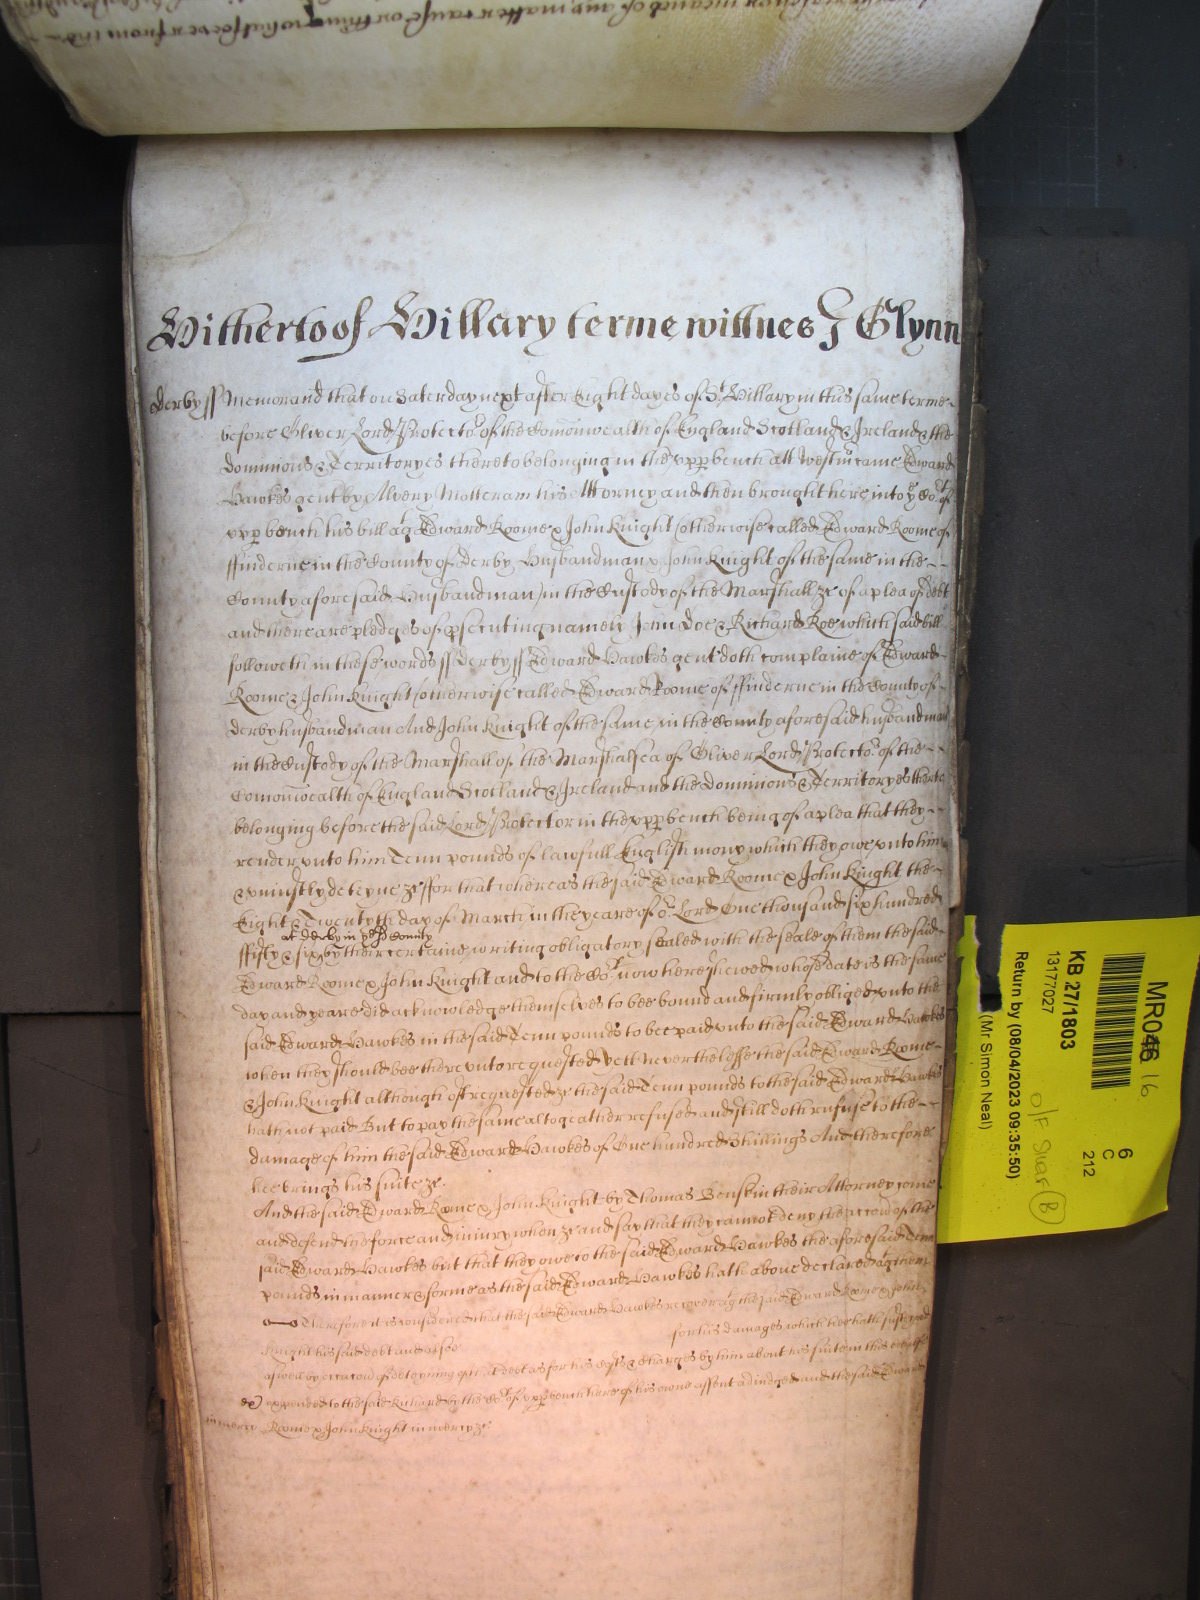 matter cause or thing whatsoever from the
Hitherto of Hillary terme wittnes J Glynn
Derby ss Memorand that on Saterday next after Eight dayes of St Hillary in this same terme
before Oliver Lord Protector of the Comonwealth of England Scotland & Ireland & the
Dominions & Territoryes thereto belonging in the upp bench att Westm came Edward
Hawkes gent by Alvery Motteram his Attorney and then brought here into ye Cort of
upp bench his bill agt Edward Roome & John Knight (otherwise called Edward Roome of
ffinderne in the County of Derby Husbandman & John Knight of the same in the
County aforesaid Husbandman) in the Custody of the Marshall &c of a plea of debt
and there are pledges of psecuting namely John Doe & Richard Roe which said bill
followeth in these words ss Derby ss Edward Hawkes gent doth complaine of Edward
Roome & John Knight (otherwise called Edward Roome of ffinderne in the County of
Derby husbandman And John Knight of the same in the County aforesaid husbandman
in the Custody of the Marshall of the Marshalsea of Oliver Lord Protector of the
Comonwealth of England Scotland & Ireland and the Dominions & Territoryes thereto
belonging before the said Lord Protector in the upp bench being of a plea that they
render unto him Tenn pounds of lawfull English mony which they owe unto him
& uniustly deteyne &c ffor that whereas the said Edward Roome & John Knight the
Eight & Twentyth day of March in the yeare of or Lord One thousand six hundred
at Derby in ye sd County
ffifty & six by their certaine writing obligatory sealed with the seale of them the said
Edward Roome & John Knight and to the Cort now here shewed whose date is the same
day and yeare did acknowledge themselves to bee bound and firmly obliged unto the
said Edward Hawkes in the said Tenn pounds to bee paid unto the said Edward Hawkes
when they should bee thereunto requested Yett Neverthelesse the said Edward Roome
& John Knight although oft requested &c the said Tenn pounds to the said Edward Hawkes
hath not paid But to pay the same altogeather refused and still doth refuse to the
damage of him the said Edward Hawkes of One hundred Shillings And therefore
hee brings his suite &c
And the said Edward Roome & John Knight by Thomas Benskin their Attorney come
and defend the force and iniury when &c and say that they cannot deny the accon of the
said Edward Hawkes but that they owe to the said Edward Hawkes the aforesaid Tenn
pounds in manner & forme as the said Edward Hawkes hath above declared agt them
Therefore it is considered that the said Edward Hawkes recover agt the said Edward Roome & John
Knight his said debt and alsoe for his damages which hee hath susteyned
aswell by occacon of deteyning of that debt as for his costs & charges by him about his suite in this behalfe
expended to the said Richard by the Cort of upp bench here of his owne assent adiudged and the said Edward
in mercy Roome & John Knight in mercy &c
MR046 16
KB 27/1803
13177027
Return by (08/04/2023 09:35:50)
(Mr Simon Neal)
6
C
212
B